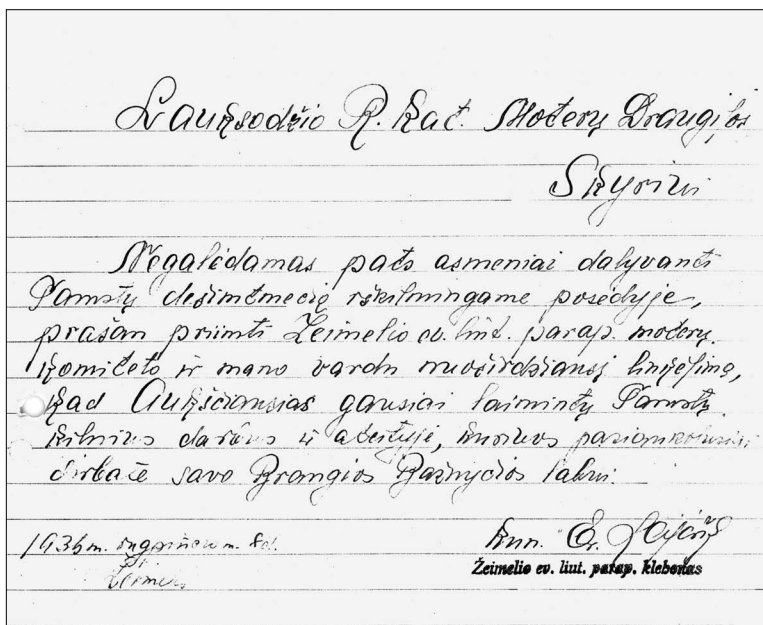 Lauksodžio R. Kat. Moterų Draugijos
Skyriui
Negalėdamas pats asmeniai dalyvauti
Tamstų dešimtmečio iškilmingame posėdyje,
prašau priimti Žeimelio ev. liut. parap. moterų
komiteto ir mano vardu nuoširdžiausį linkėjimą,
kad Aukščiausias gausiai laimintų Tamstų
kilnius darbus ir ateityje, kuriuos
dirbate savo Brangios Bažnyčios labui.
1936 m. rugpiučio m. 8 d.
kun. Er.
Žeimelio ev. liut. parap. klebonas